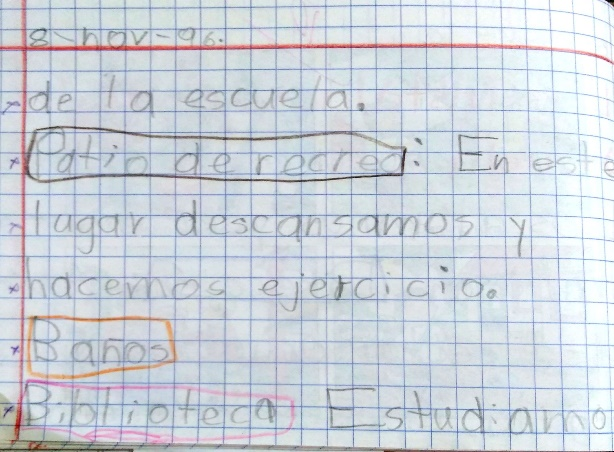 8-nov-96.
de la escuela.
Patio de recreo: En este
lugar descansamos y
hacemos ejercicio.
Baños
Biblioteca Estudiamo